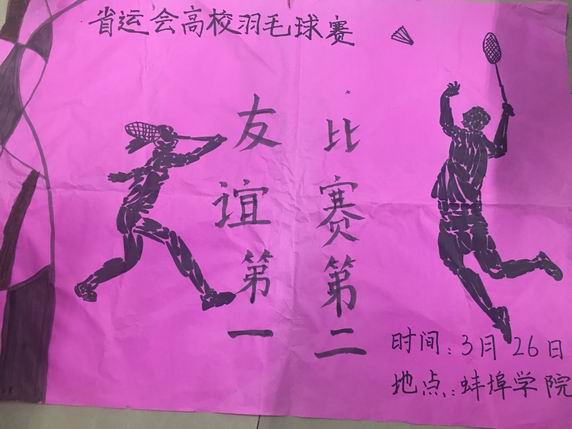 省运会高校羽毛球赛
友谊第一
比赛第二
时间:3月26日
地点:蚌埠学院